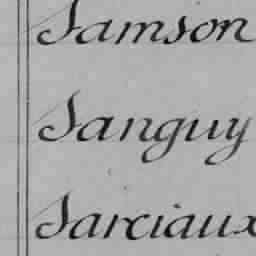 Samson
Sanguy
Sarciaux